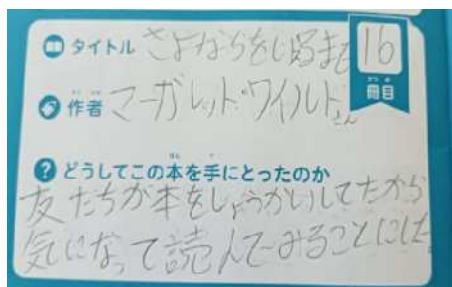 タイトル さよならをいえるまで
16
冊目
作者 マーガレット・ワイルドさん
どうしてこの本を手にとったのか
友だちが本をしょうかいしてたから
気になって読んでみることにした。